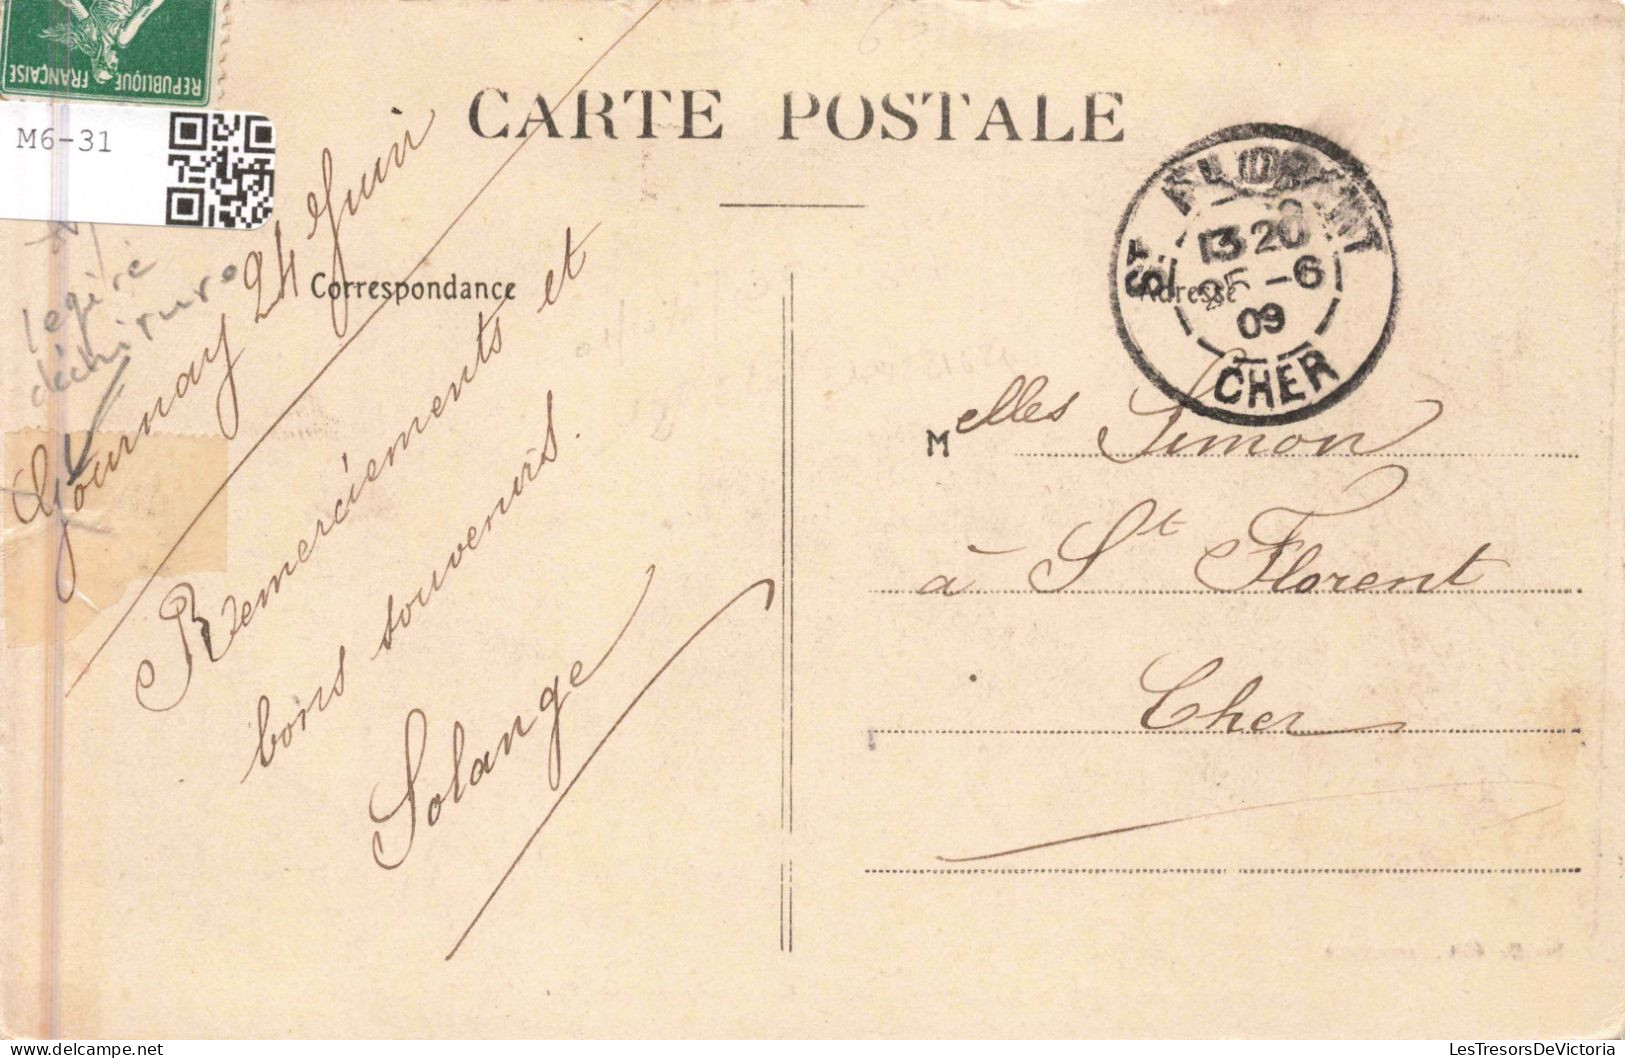 REPUBLIQUE FRANÇAISE
M6-31
CARTE POSTALE
Correspondance
Adresse
légère
déchirure
Gournay 24 Juin
Remerciements et
bons souvenirs.
Solange
ST FLORENT
13 20
25 -6
09
CHER
Melles Simon
à St Florent
Cher
LesTresorsDeVictoria